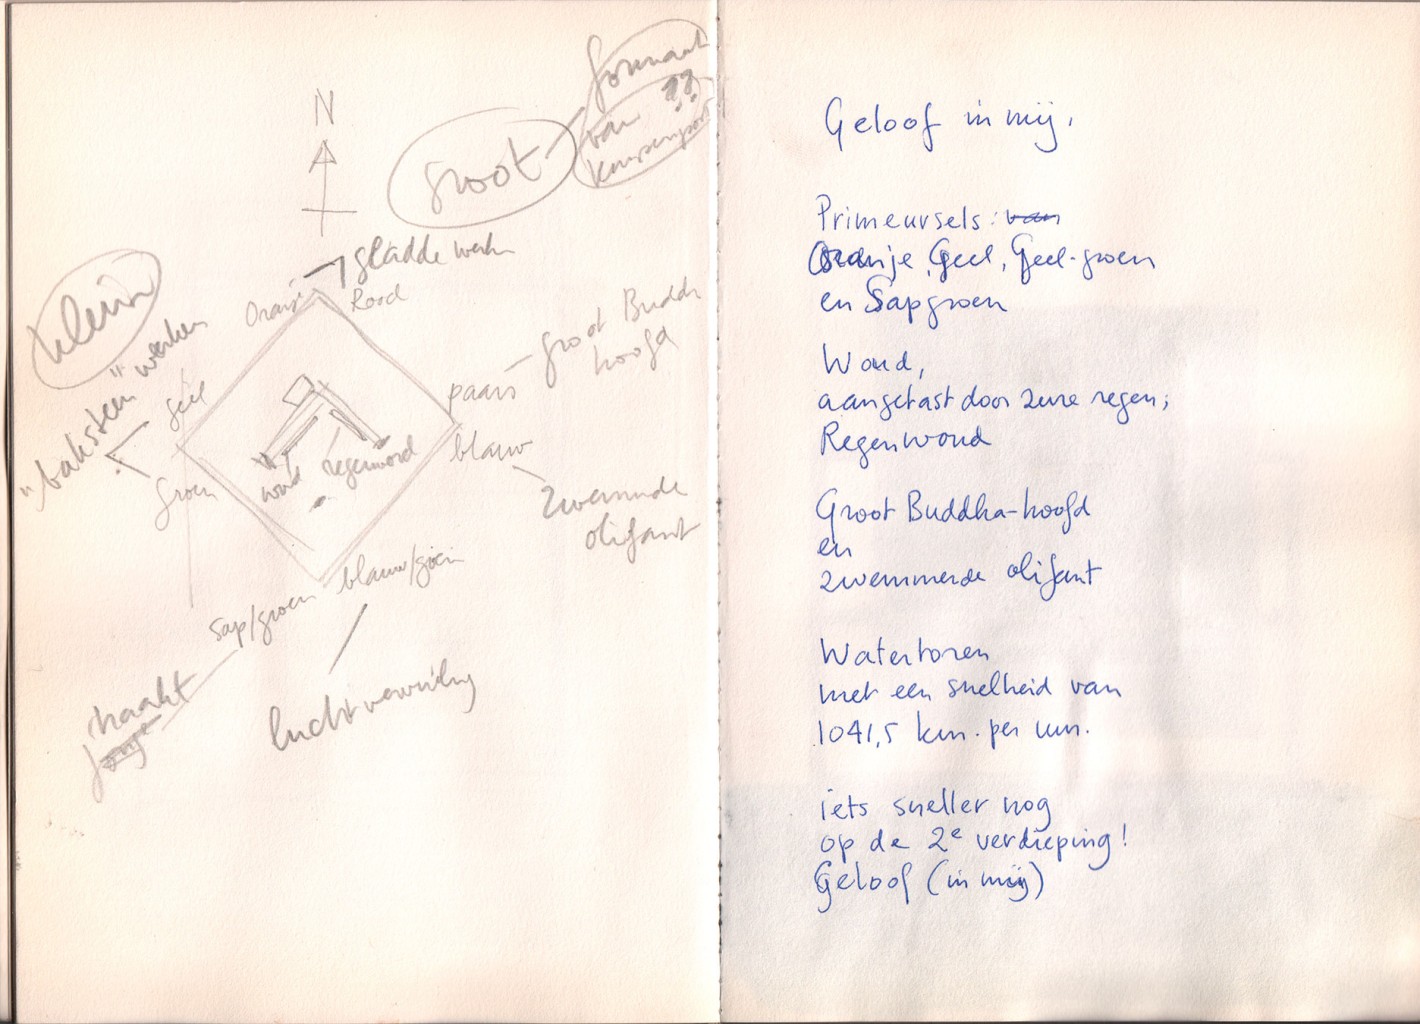 N
groot
formaat
van ??
klein
gladde werken
Oranje
Rood
groot Buddha
hoofd
"baksteen" werken
geel
groen
paars
blauw
woud
regenwoud
zwemmende
olifant
blauw/groen
sap/groen
naakt
luchtvervuiling
Geloof in mij,
Primeursels: van
Oranje, Geel, Geel-groen
en Sapgroen
Woud,
aangetast door zure regen;
Regenwoud
Groot Buddha-hoofd
en
zwemmende olifant
Watertoren
met een snelheid van
1041,5 km. per uur.
iets sneller nog
op de 2e verdieping!
Geloof (in mij)